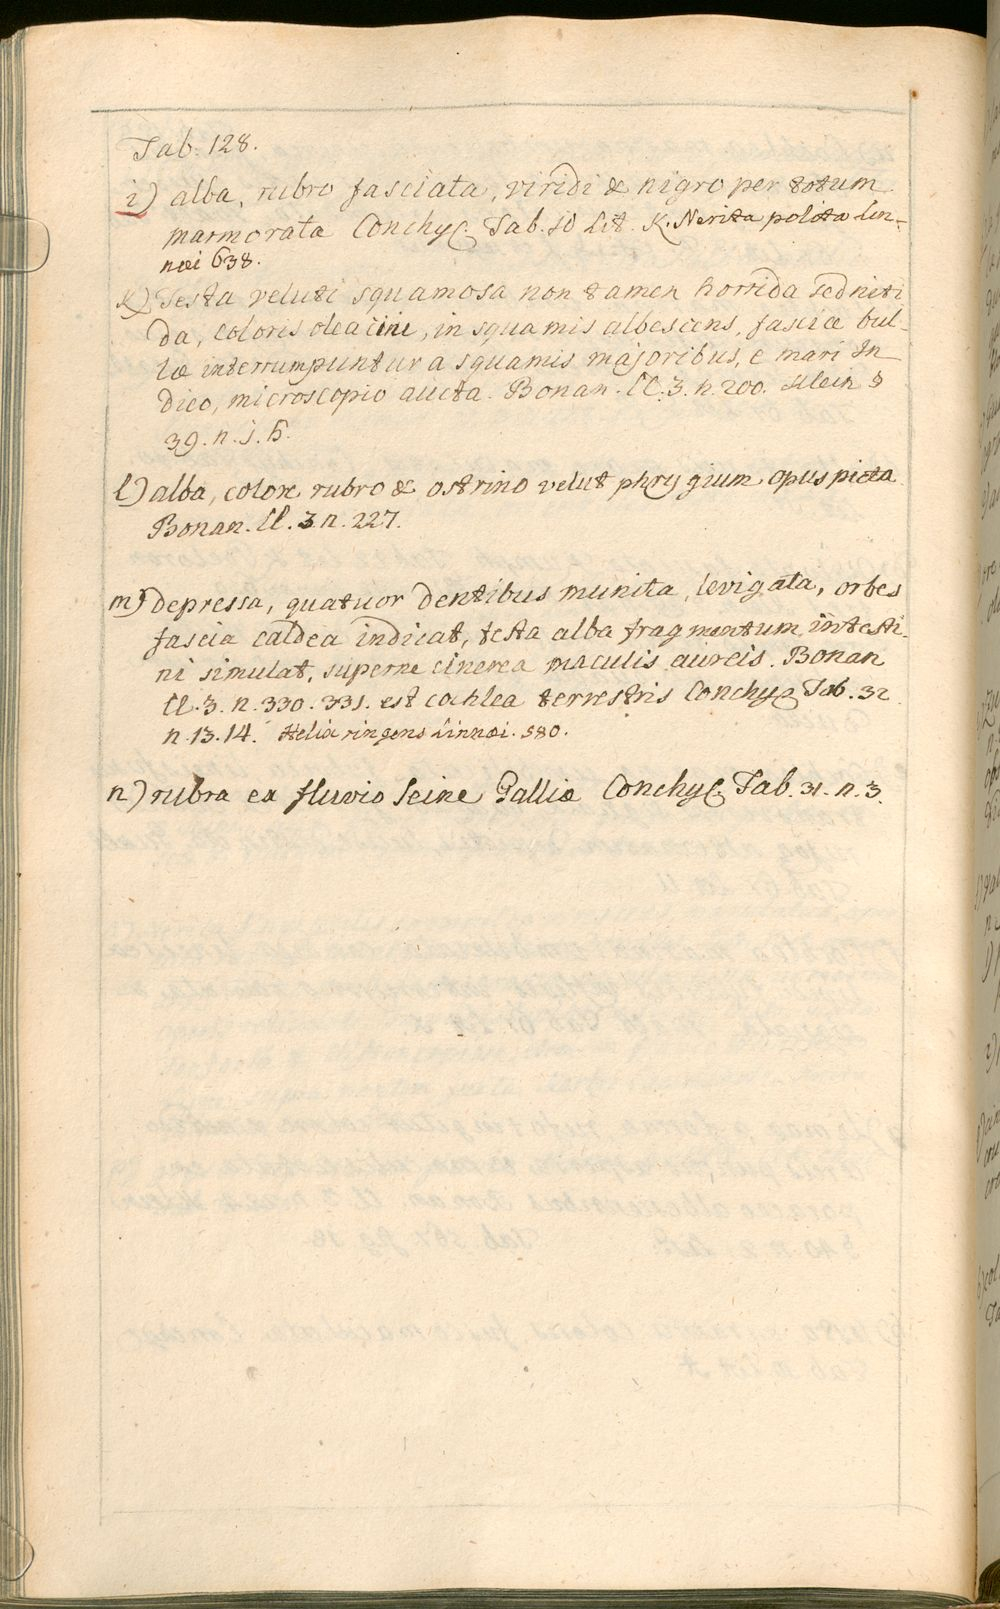 Tab. 128.
i) alba, rubro fasciata, viridi & nigro per totum
marmorata Conchyl. Tab. 10 Lit. K. Nerita polita Lin-
næi 638.
K) Testa veluti squamosa non tamen horrida sed niti
da, coloris oleacini, in squamis albescens, fasciæ bul-
læ interrumpuntur a squamis majoribus, e mari In
dico, microscopio aucta. Bonan. Cl. 3. n. 200. Klein §
39. n. j. h.
l) alba, colore rubro & ostrino velut phrygium opus picta
Bonan. Cl. 3 n. 227.
m) depressa, quatuor dentibus munita, levigata, orbes
fascia caldea indicat, testa alba fragmentum intesti-
ni simulat, superne cinerea maculis aureis. Bonan
Cl. 3. n. 330. 331. est cochlea terrestris Conchyl. Tab. 32
n. 13. 14. Helix ringens Linnæi. 580.
n) rubra ex fluvio Seine Galliæ Conchyl. Tab. 31. n. 3.